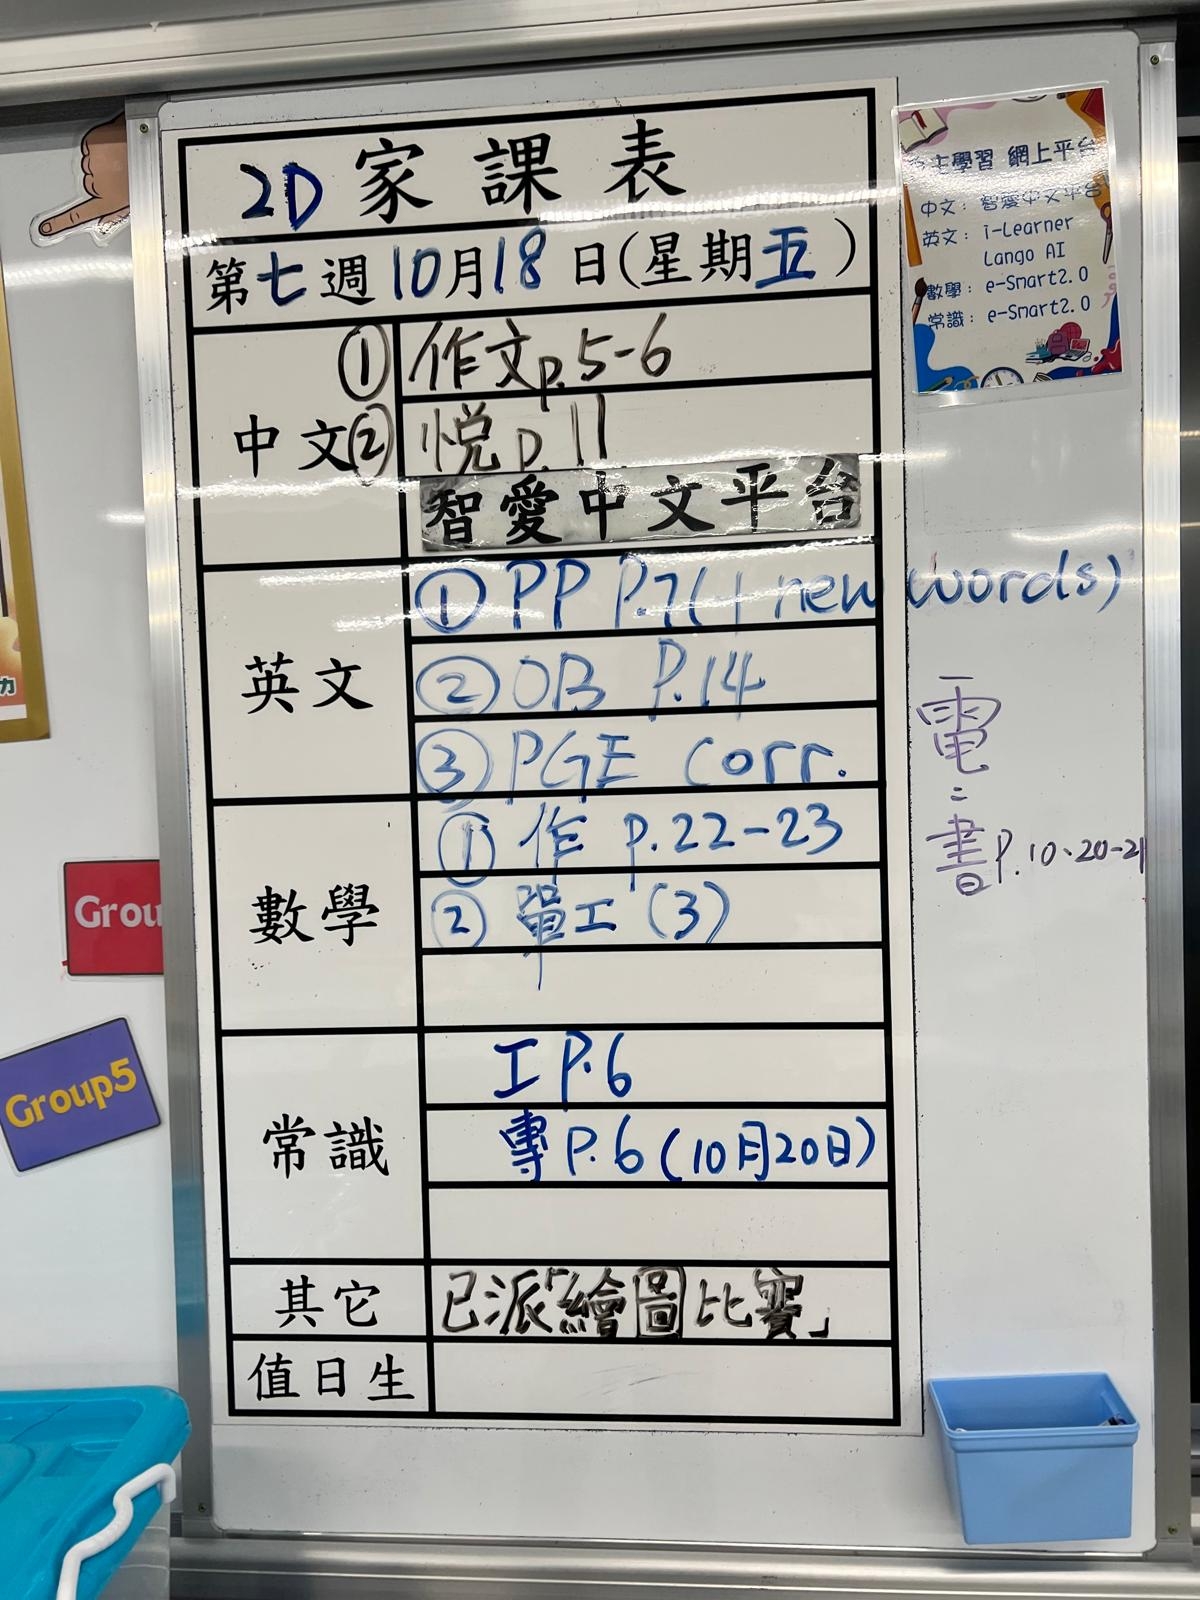 2D家課表
第七週10月18日(星期五)
中文
① 作文p.5-6
② 悅p.11
智愛中文平台
英文
① PP P.7(+ new words)
② OB P.14
③ PGE Corr.
數學
① 作 p.22-23
② 單工 (3)
常識
工P.6
專P.6(10月20日)
其它
已派「繪圖比賽」
值日生
主學習 網上平台
中文：智愛中文平台
英文：i-Learner
Lango AI
數學：e-Smart2.0
常識：e-Smart2.0
電
書P.10、20-21
Grou
Group5
力